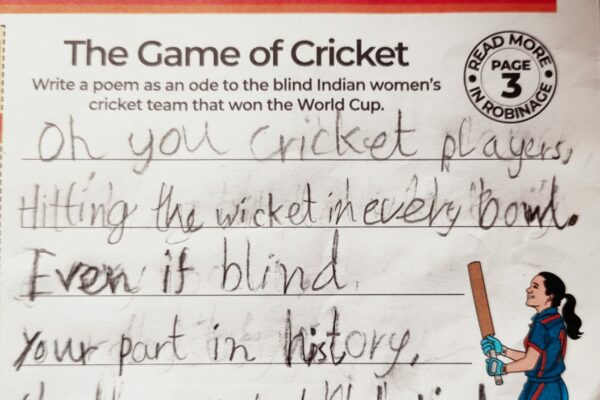 The Game of Cricket
Write a poem as an ode to the blind Indian women's
cricket team that won the World Cup.
READ MORE
PAGE
3
IN ROBINAGE
Oh you cricket players,
Hitting the wicket in every bowl.
Even if blind
Your part in history,